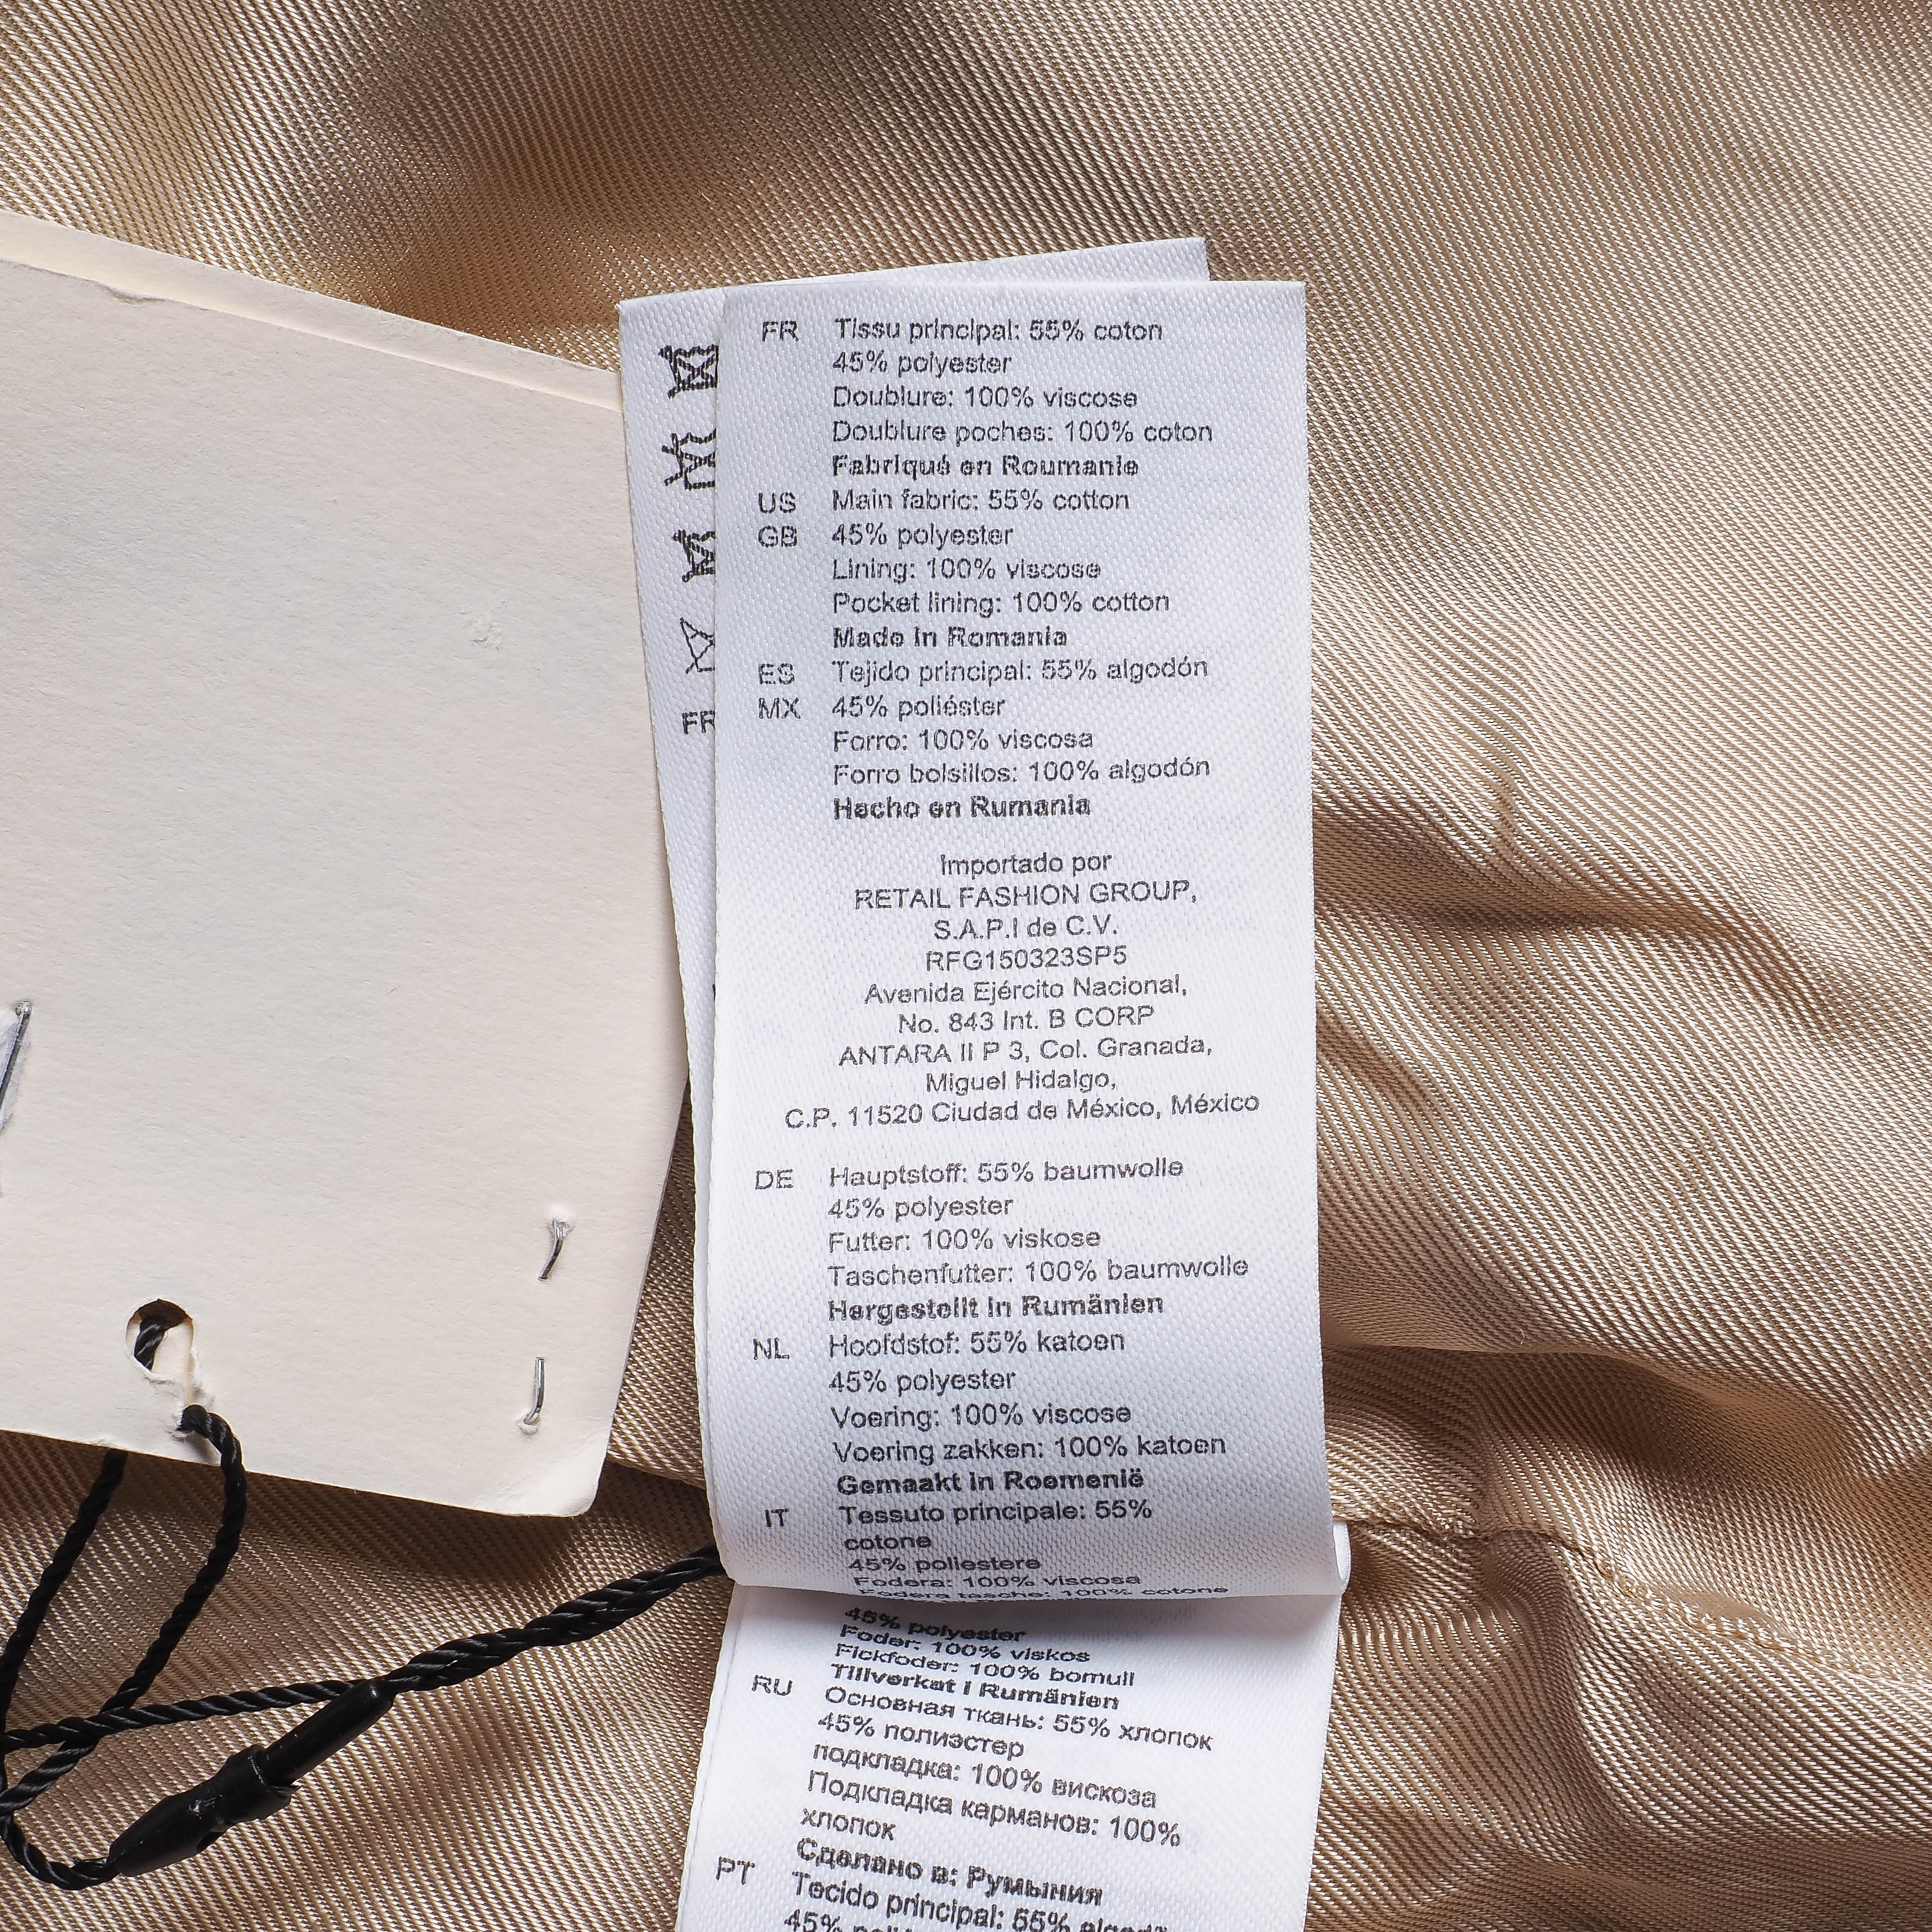 FR Tissu principal: 55% coton
45% polyester
Doublure: 100% viscose
Doublure poches: 100% coton
Fabriqué en Roumanie
US Main fabric: 55% cotton
GB 45% polyester
Lining: 100% viscose
Pocket lining: 100% cotton
Made in Romania
ES Tejido principal: 55% algodón
MX 45% poliéster
Forro: 100% viscosa
Forro bolsillos: 100% algodón
Hecho en Rumania
Importado por
RETAIL FASHION GROUP,
S.A.P.I de C.V.
RFG150323SP5
Avenida Ejército Nacional,
No. 843 Int. B CORP
ANTARA II P 3, Col. Granada,
Miguel Hidalgo,
C.P. 11520 Ciudad de México, México
DE Hauptstoff: 55% baumwolle
45% polyester
Futter: 100% viskose
Taschenfutter: 100% baumwolle
Hergestellt in Rumänien
NL Hoofdstof: 55% katoen
45% polyester
Voering: 100% viscose
Voering zakken: 100% katoen
Gemaakt in Roemenië
IT Tessuto principale: 55%
cotone
45% poliestere
Fodera: 100% viscosa
Fodera tasche: 100% cotone
45% polyester
Foder: 100% viskos
Fickfoder: 100% bomull
Tillverkat i Rumänien
RU Основная ткань: 55% хлопок
45% полиэстер
подкладка: 100% вискоза
Подкладка карманов: 100%
хлопок
Сделано в: Румыния
PT Tecido principal: 55%
45%
FR